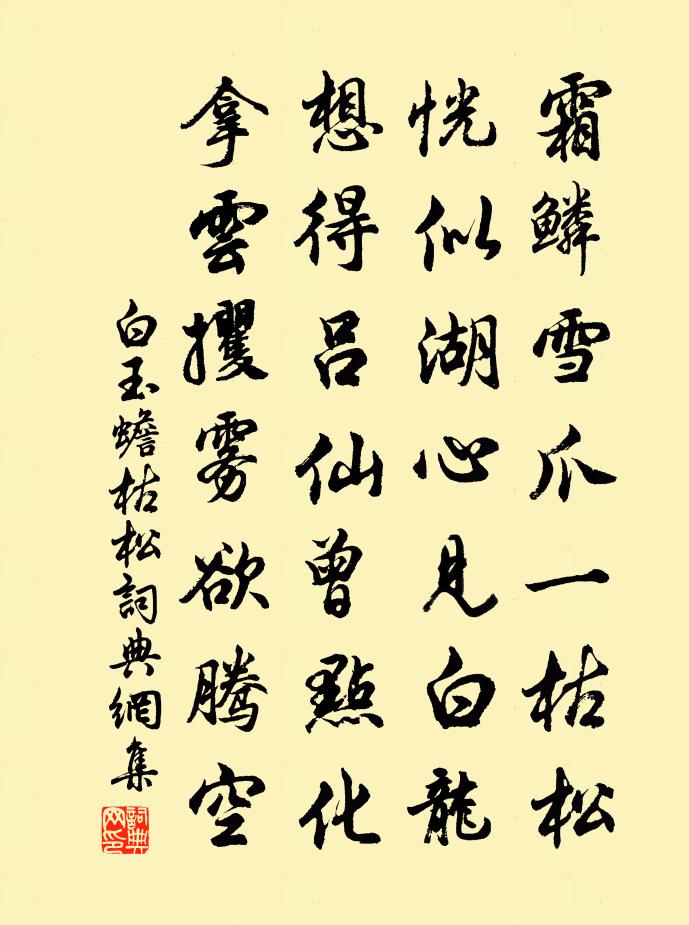 霜鱗雪爪一枯松
恍似湖心見白龍
想得呂仙曾點化
拿雲攫雾欲騰空
白玉蟾枯松詞典網集
詞典网印